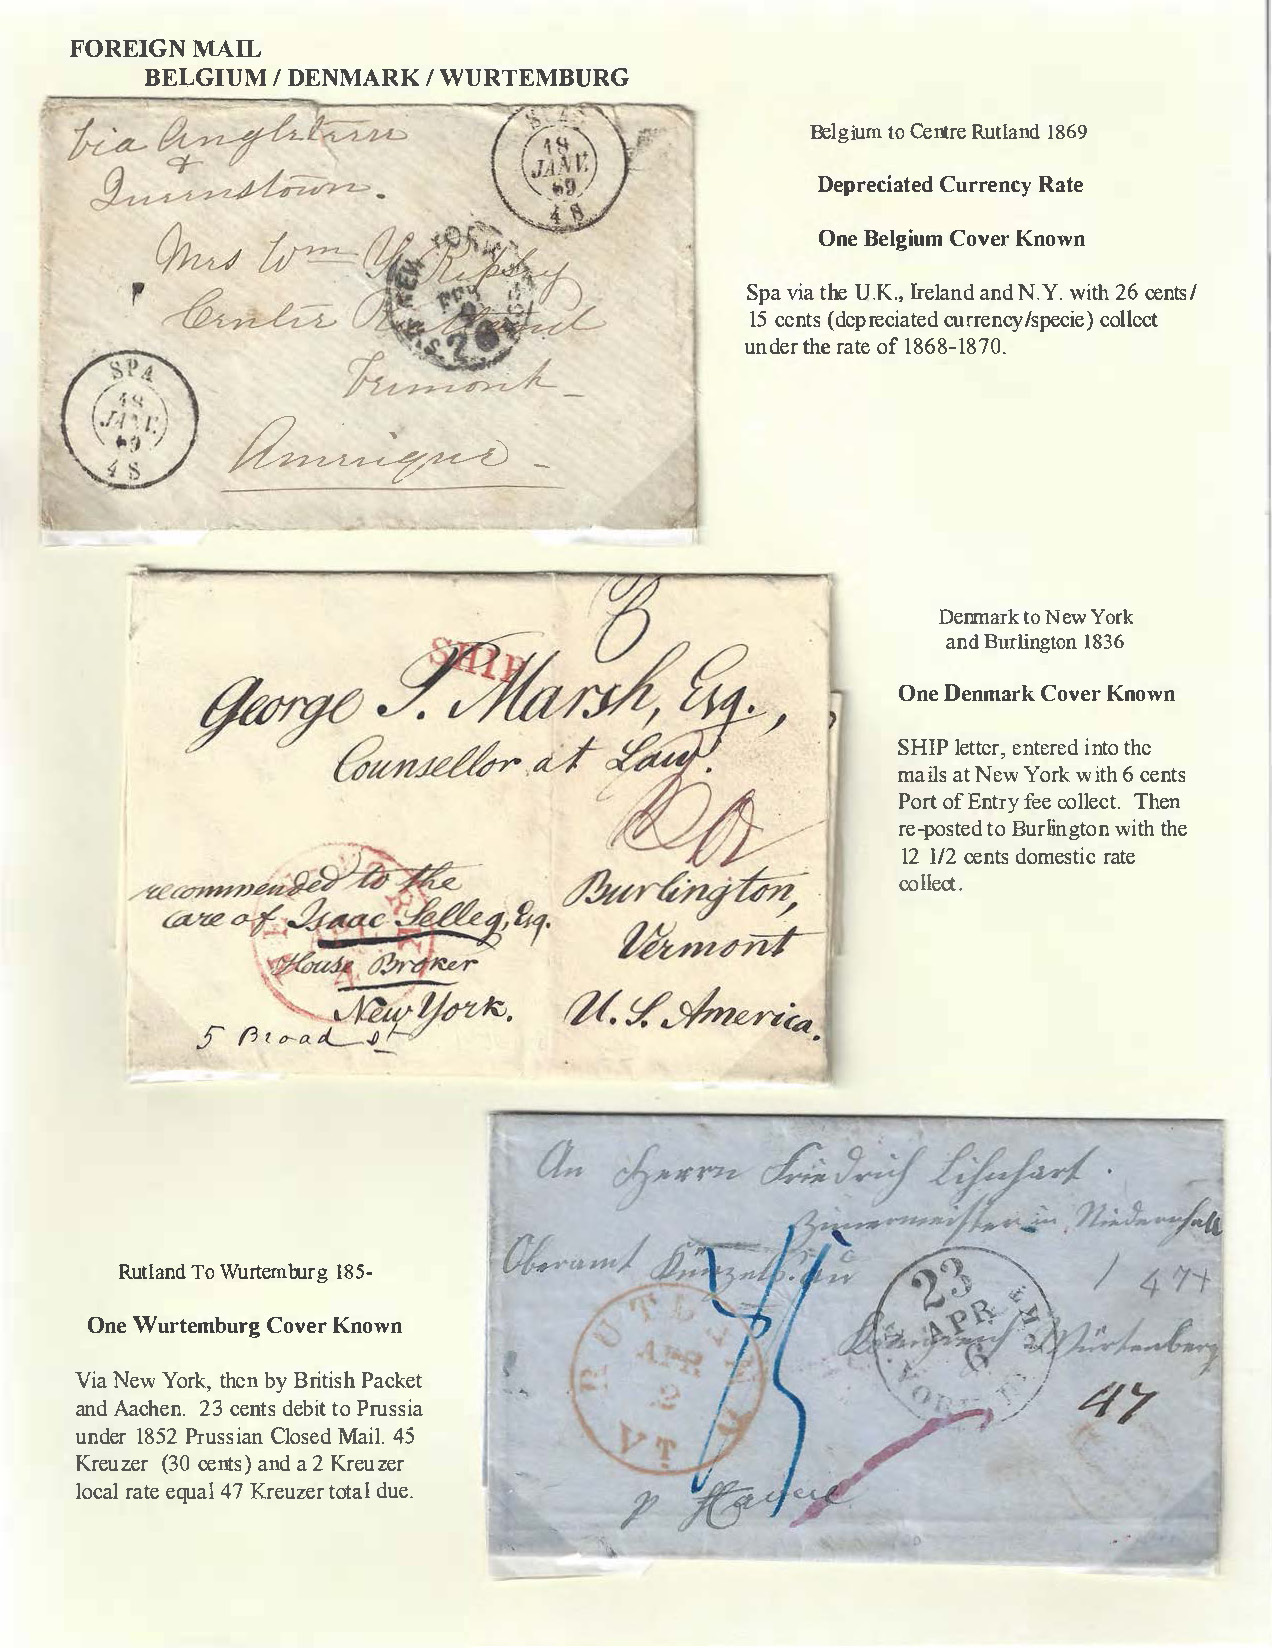 FOREIGN MAIL
BELGIUM / DENMARK / WURTEMBURG
Via Angleterre
&
Queenstown.
Mrs Wm Y. Ripley
Center Rutland
Vermont
Amerique
SPA
18
JANV.
69
4 S
NEW YORK
FEB
U.S.
26
SPA
18
JANV.
69
4 S
Belgium to Centre Rutland 1869
Depreciated Currency Rate
One Belgium Cover Known
Spa via the U.K., Ireland and N.Y. with 26 cents/
15 cents (depreciated currency/specie) collect
under the rate of 1868-1870.
6
SHIP
George P. Marsh, Esq.,
Counsellor at Law.
recommended to the
care of Isaac Selleg, Esq.
House Broker
New York.
5 Broad st
Burlington,
Vermont
U. S. America.
Denmark to New York
and Burlington 1836
One Denmark Cover Known
SHIP letter, entered into the
mails at New York with 6 cents
Port of Entry fee collect. Then
re-posted to Burlington with the
12 1/2 cents domestic rate
collect.
Rutland To Wurtemburg 185-
One Wurtemburg Cover Known
Via New York, then by British Packet
and Aachen. 23 cents debit to Prussia
under 1852 Prussian Closed Mail. 45
Kreuzer (30 cents) and a 2 Kreuzer
local rate equal 47 Kreuzer total due.
An Herrn Friedrich Lihnhart.
Zimmermeister in Niedernhall
Oberamt Künzelsau
Königreich Würtenberg
p Havre
RUTLAND
APR
2
VT.
23
APR
6
45
47